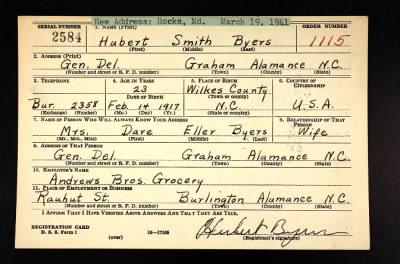 New Address: Rocks, Md. March 19, 1941
SERIAL NUMBER 1. NAME (Print) ORDER NUMBER
2584 Hubert Smith Byers 1115
(First) (Middle) (Last)
2. ADDRESS (Print)
Gen. Del. Graham Alamance N.C.
(Number and street or R. F. D. number) (Town) (County) (State)
3. TELEPHONE 4. AGE IN YEARS 5. PLACE OF BIRTH 6. COUNTRY OF CITIZENSHIP
23 Wilkes County
DATE OF BIRTH (Town or county)
Bur. 2358 Feb. 14 1917 N.C. U.S.A.
(Exchange) (Number) (Mo.) (Day) (Yr.) (State or country)
7. NAME OF PERSON WHO WILL ALWAYS KNOW YOUR ADDRESS 8. RELATIONSHIP OF THAT PERSON
Mrs. Dare Eller Byers Wife
(Mr., Mrs., Miss) (First) (Middle) (Last)
9. ADDRESS OF THAT PERSON
Gen. Del. Graham Alamance N.C.
(Number and street or R. F. D. number) (Town) (County) (State)
10. EMPLOYER'S NAME
Andrews Bros. Grocery
11. PLACE OF EMPLOYMENT OR BUSINESS
Rauhut St. Burlington Alamance N.C.
(Number and street or R. F. D. number) (Town) (County) (State)
I AFFIRM THAT I HAVE VERIFIED ABOVE ANSWERS AND THAT THEY ARE TRUE.
REGISTRATION CARD
D. S. S. Form 1 (over) 16-17105 Hubert Byers
(Registrant's signature)